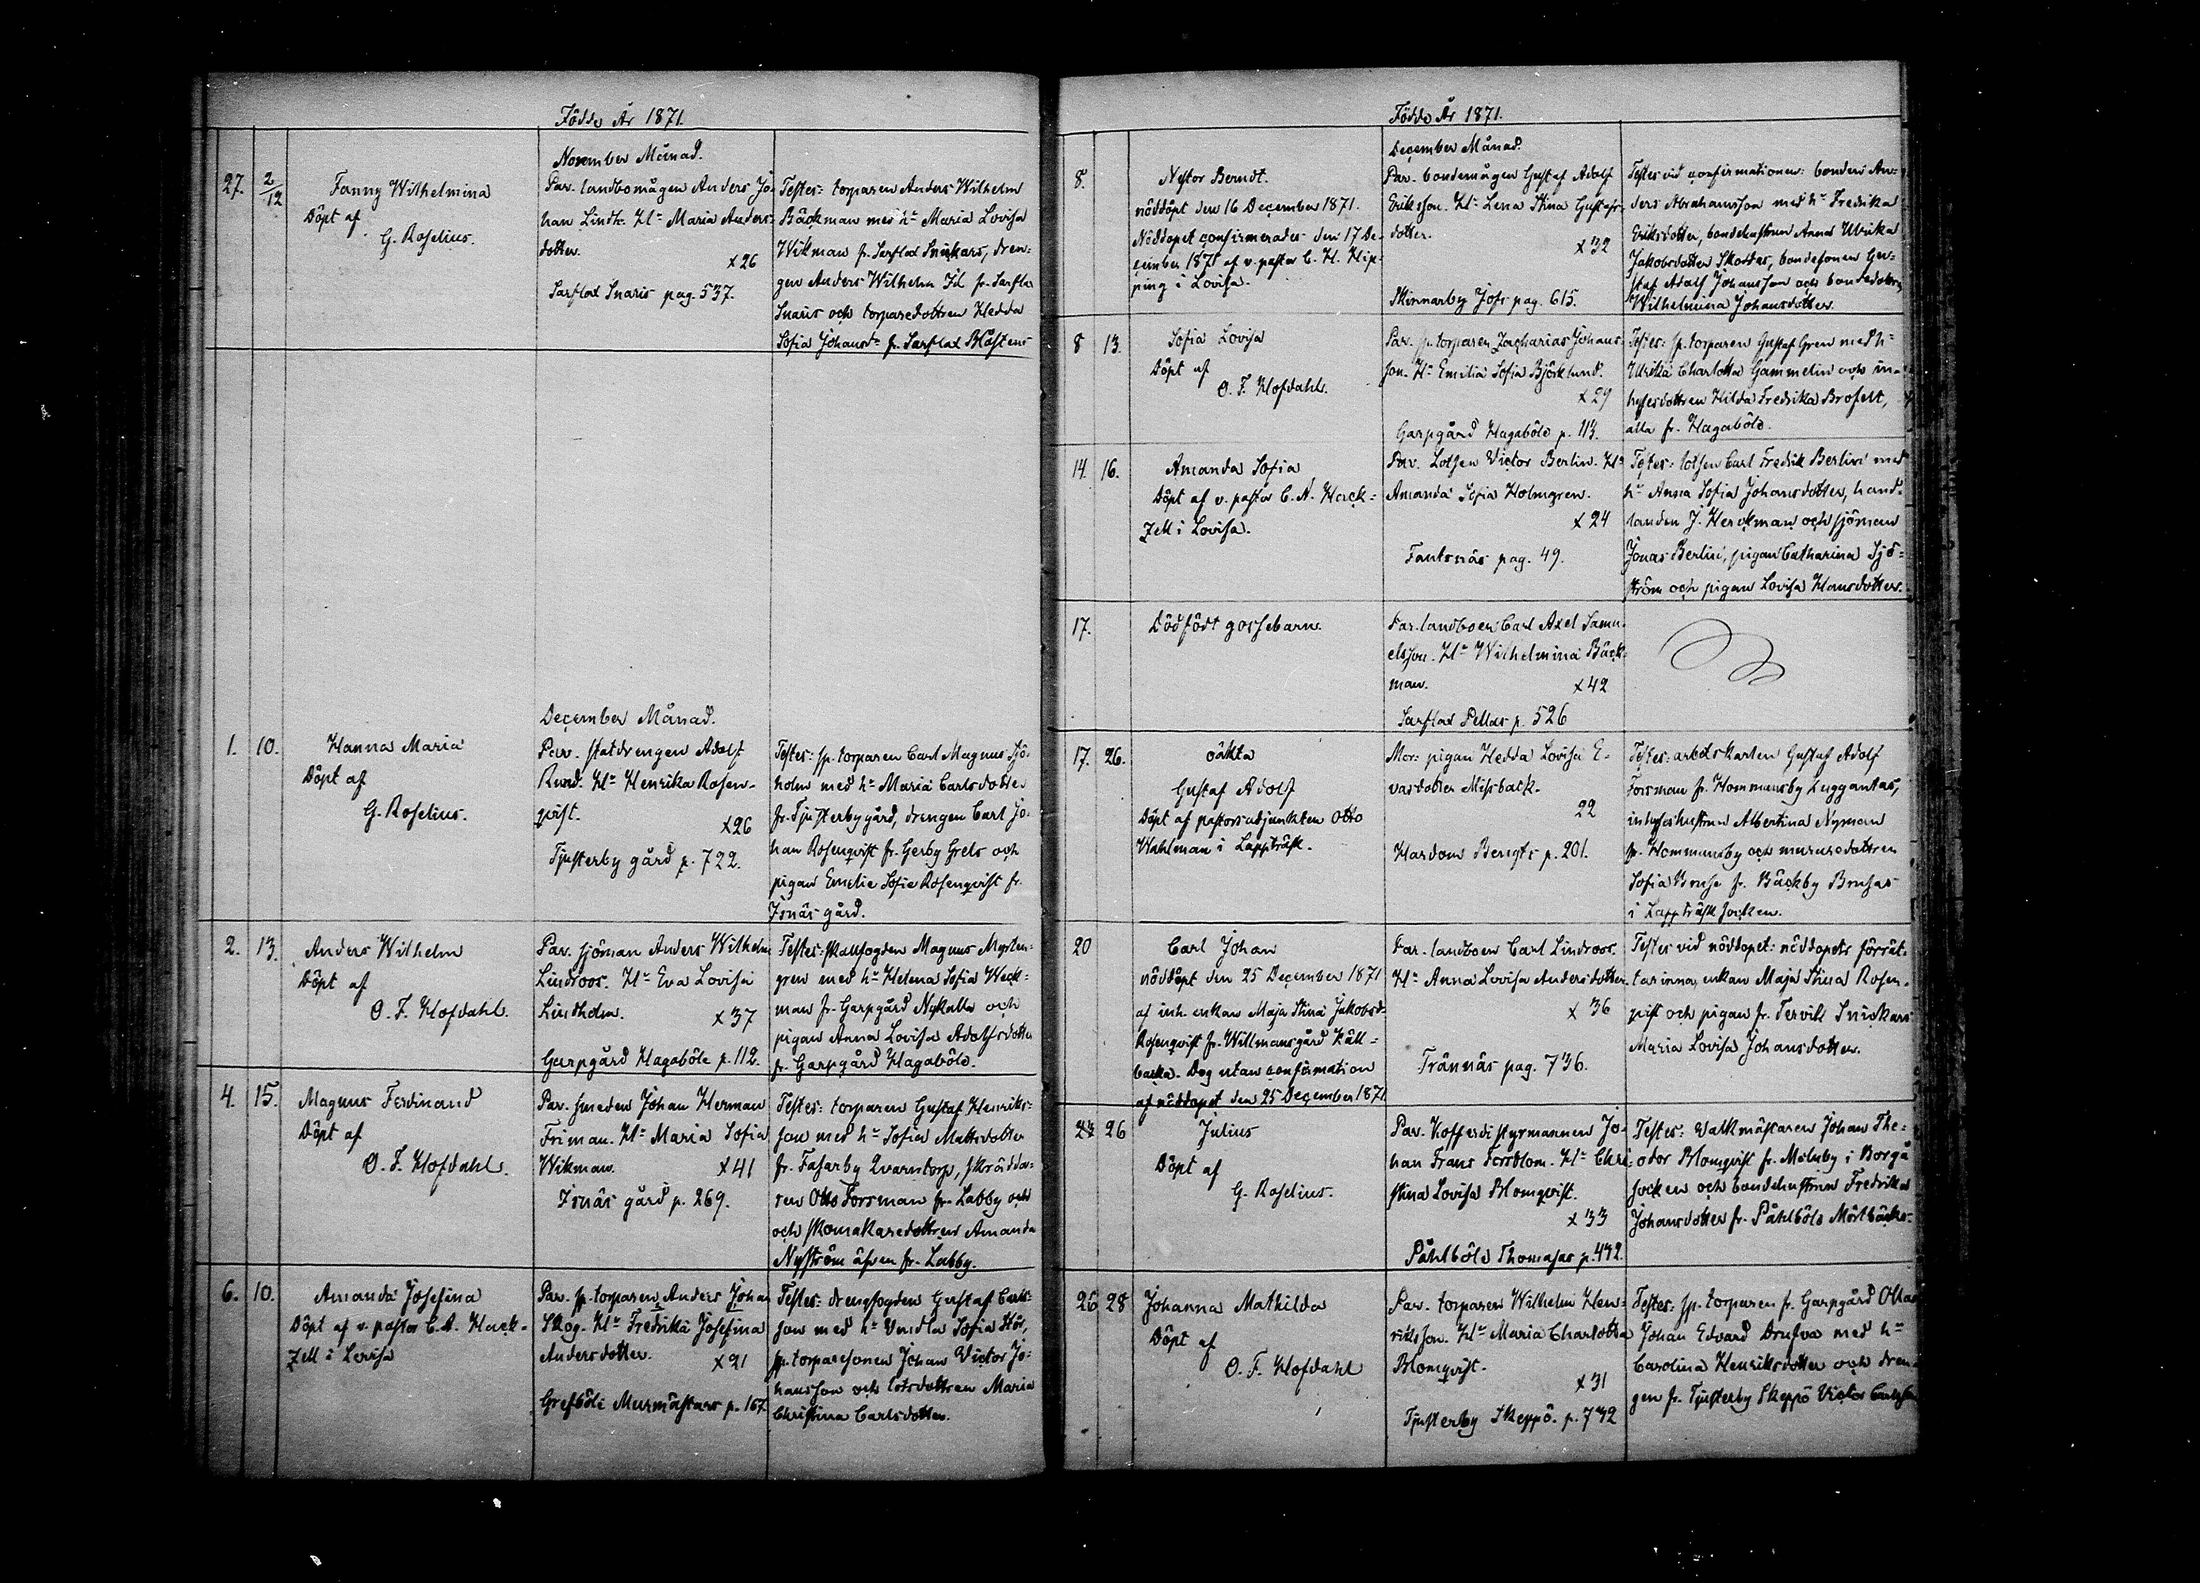 Födde År 1871.
November Månad.
27. 2/12
Fanny Wilhelmina
Döpt af
G. Roselius.
Par. landbomågen Anders Jo-
han Lindh. Hu Maria Anders-
dotter.
x26
Sarflax Snaris pag. 537.
Testes: torparen Anders Wilhelm
Bäckman med hu Maria Lovisa
Wikman fr. Sarflax Snikars, dren-
gen Anders Wilhelm Id fr. Sarflax
Snaris och torparedottren Hedda
Sofia Johansdr fr. Sarflax
December Månad.
1. 10.
Hanna Maria
Döpt af
G. Roselius.
Par. statdrengen Adolf
Rund. Hu Henrika Rosen-
qvist.
x26
Tjusterby gård p. 722.
Testes: sp. torparen Carl Magnus Sjö-
holm med hu Maria Carlsdotter
fr. Tjusterby gård, drengen Carl Jo-
han Rosenqvist fr. Gerby Grels och
pigan Emelie Sofie Rosenqvist fr.
Isnäs gård.
2. 13.
Anders Wilhelm
Döpt af
O. F. Hofdahl.
Par. sjöman Anders Wilhelm
Lindroos. Hu Eva Lovisa
Lindholm.
x37
Garpgård Hagaböle p. 112.
Testes: skallfogden Magnus Myrten-
gren med hu Helena Sofia Weck-
man fr. Garpgård Nykulla och
pigan Anna Lovisa Adolfsdotter
fr. Garpgård Hagaböle.
4. 15.
Magnus Ferdinand
Döpt af
O. F. Hofdahl.
Par. smeden Johan Herman
Friman. Hu Maria Sofia
Wikman.
x41
Isnäs gård p. 269.
Testes: torparen Gustaf Henriks-
son med hu Sofia Mattsdotter
fr. Fasarby Qvarntorp, skrädda-
ren Otto Forsman fr. Labby och
och skomakaredottren Amanda
Nyström äfven fr. Labby.
6. 10.
Amanda Josefina
Döpt af v. pastor C. A. Hack-
zell i Lovisa
Par. sp. torparen Anders Johan
Skog. Hu Fredrika Josefina
Andersdotter.
x21
Greggböle Murmästars p. 167.
Testes: drengfogden Gustaf Carls-
son med hu Vendla Sofia Hör,
sp. torparesonen Johan Victor Jo-
hansson och lotsdottren Maria
Christina Carlsdotter.
Födde År 1871.
December Månad.
8.
Nestor Berndt.
nöddöpt den 16 December 1871.
Nöddopet confirmerades den 17 De-
cember 1871 af v. pastor C. H. Hip-
ping i Lovisa.
Par. bondemågen Gustaf Adolf
Eriksson. Hu Lena Stina Gustafs-
dotter.
x32
Skinnarby Jofs pag. 615.
Testes vid confirmationen: bonden An-
ders Abrahamsson med hu Fredrika
Eriksdotter, bondehustrun Anna Ulrika
Jakobsdotter Skottar, bondesonen Gu-
staf Adolf Johansson och bondedottren
Wilhelmina Johansdotter.
8 13.
Sofia Lovisa
Döpt af
O. F. Hofdahl.
Par. sp. torparen Zacharias Johans-
son. Hu Emilia Sofia Björklund.
x29
Garpgård Hagaböle p. 113.
Testes: sp. torparen Gustaf Gren med h-
Ulrika Charlotta Gammelin och in-
hysesdottren Hilda Fredrika Brofelt,
alla fr. Hagaböle.
14. 16.
Amanda Sofia
Döpt af v. pastor C. A. Hack-
zell i Lovisa.
Par. Lotsen Victor Berlin. Hu
Amanda Sofia Holmgren.
x24
Fantsnäs pag. 49.
Testes: lotsen Carl Fredrik Berlin med
hu Anna Sofia Johansdotter, hand-
landen J. Herckman och sjöman
Jonas Berlin, pigan Catharina Sjö-
ström och pigan Lovisa Hansdotter.
17.
Dödfödt gossebarn.
Par. landboen Carl Axel Samu-
elsson. Hu Wilhelmina Bäck-
man.
x42
Sarflax Pellas p. 526
17. 26.
oäkta
Gustaf Adolf
Döpt af pastorsadjunkten Otto
Wahlman i Lappträsk.
Mor: pigan Hedda Lovisa E-
varsdotter Missback.
22
Hardom Bengts p. 201.
Testes: arbetskarlen Gustaf Adolf
Forsman fr. Hommansby Luggantas,
inhyseshustrun Albertina Nyman
fr. Hommansby och muraredottren
Sofia Bruse fr. Bäckby Brusas
i Lappträsk socken.
20
Carl Johan
nöddöpt den 25 December 1871
af inh. enkan Maja Stina Jakobsdr
Rosenqvist fr. Willmansgård Käll-
backa. Dog utan confirmation
af nöddopet den 25 December 1871.
Par. landboen Carl Lindroos.
Hu Anna Lovisa Andersdotter
x36
Trännäs pag. 736.
Testes vid nöddopet: nöddopets förrät-
tarinna, enkan Maja Stina Rosen-
qvist och pigan fr. Tervik Snickars
Maria Lovisa Johansdotter.
24 26
Julius
Döpt af
G. Roselius.
Par. Kofferdistyrmannen Jo-
han Frans Forsblom. Hu Chri-
stina Lovisa Blomqvist.
x33
Påhlböle Thomasas p. 442.
Testes: Valkmästaren Johan The-
odor Blomqvist fr. Molnby i Borgå
socken och bondehustrun Fredrika
Johansdotter fr. Påhlböle Mörtbäcks.
26 28
Johanna Mathilda
Döpt af
O. F. Hofdahl
Par. torparen Wilhelm Hen-
riksson. Hu Maria Charlotta
Blomqvist.
x31
Tjusterby Skeppö. p. 742
Testes: sp. torparen fr. Garpgård Ollas
Johan Edvard Drufva med hu
Carolina Henriksdotter och dren-
gen fr. Tjusterby Skeppö Victor Carlsson